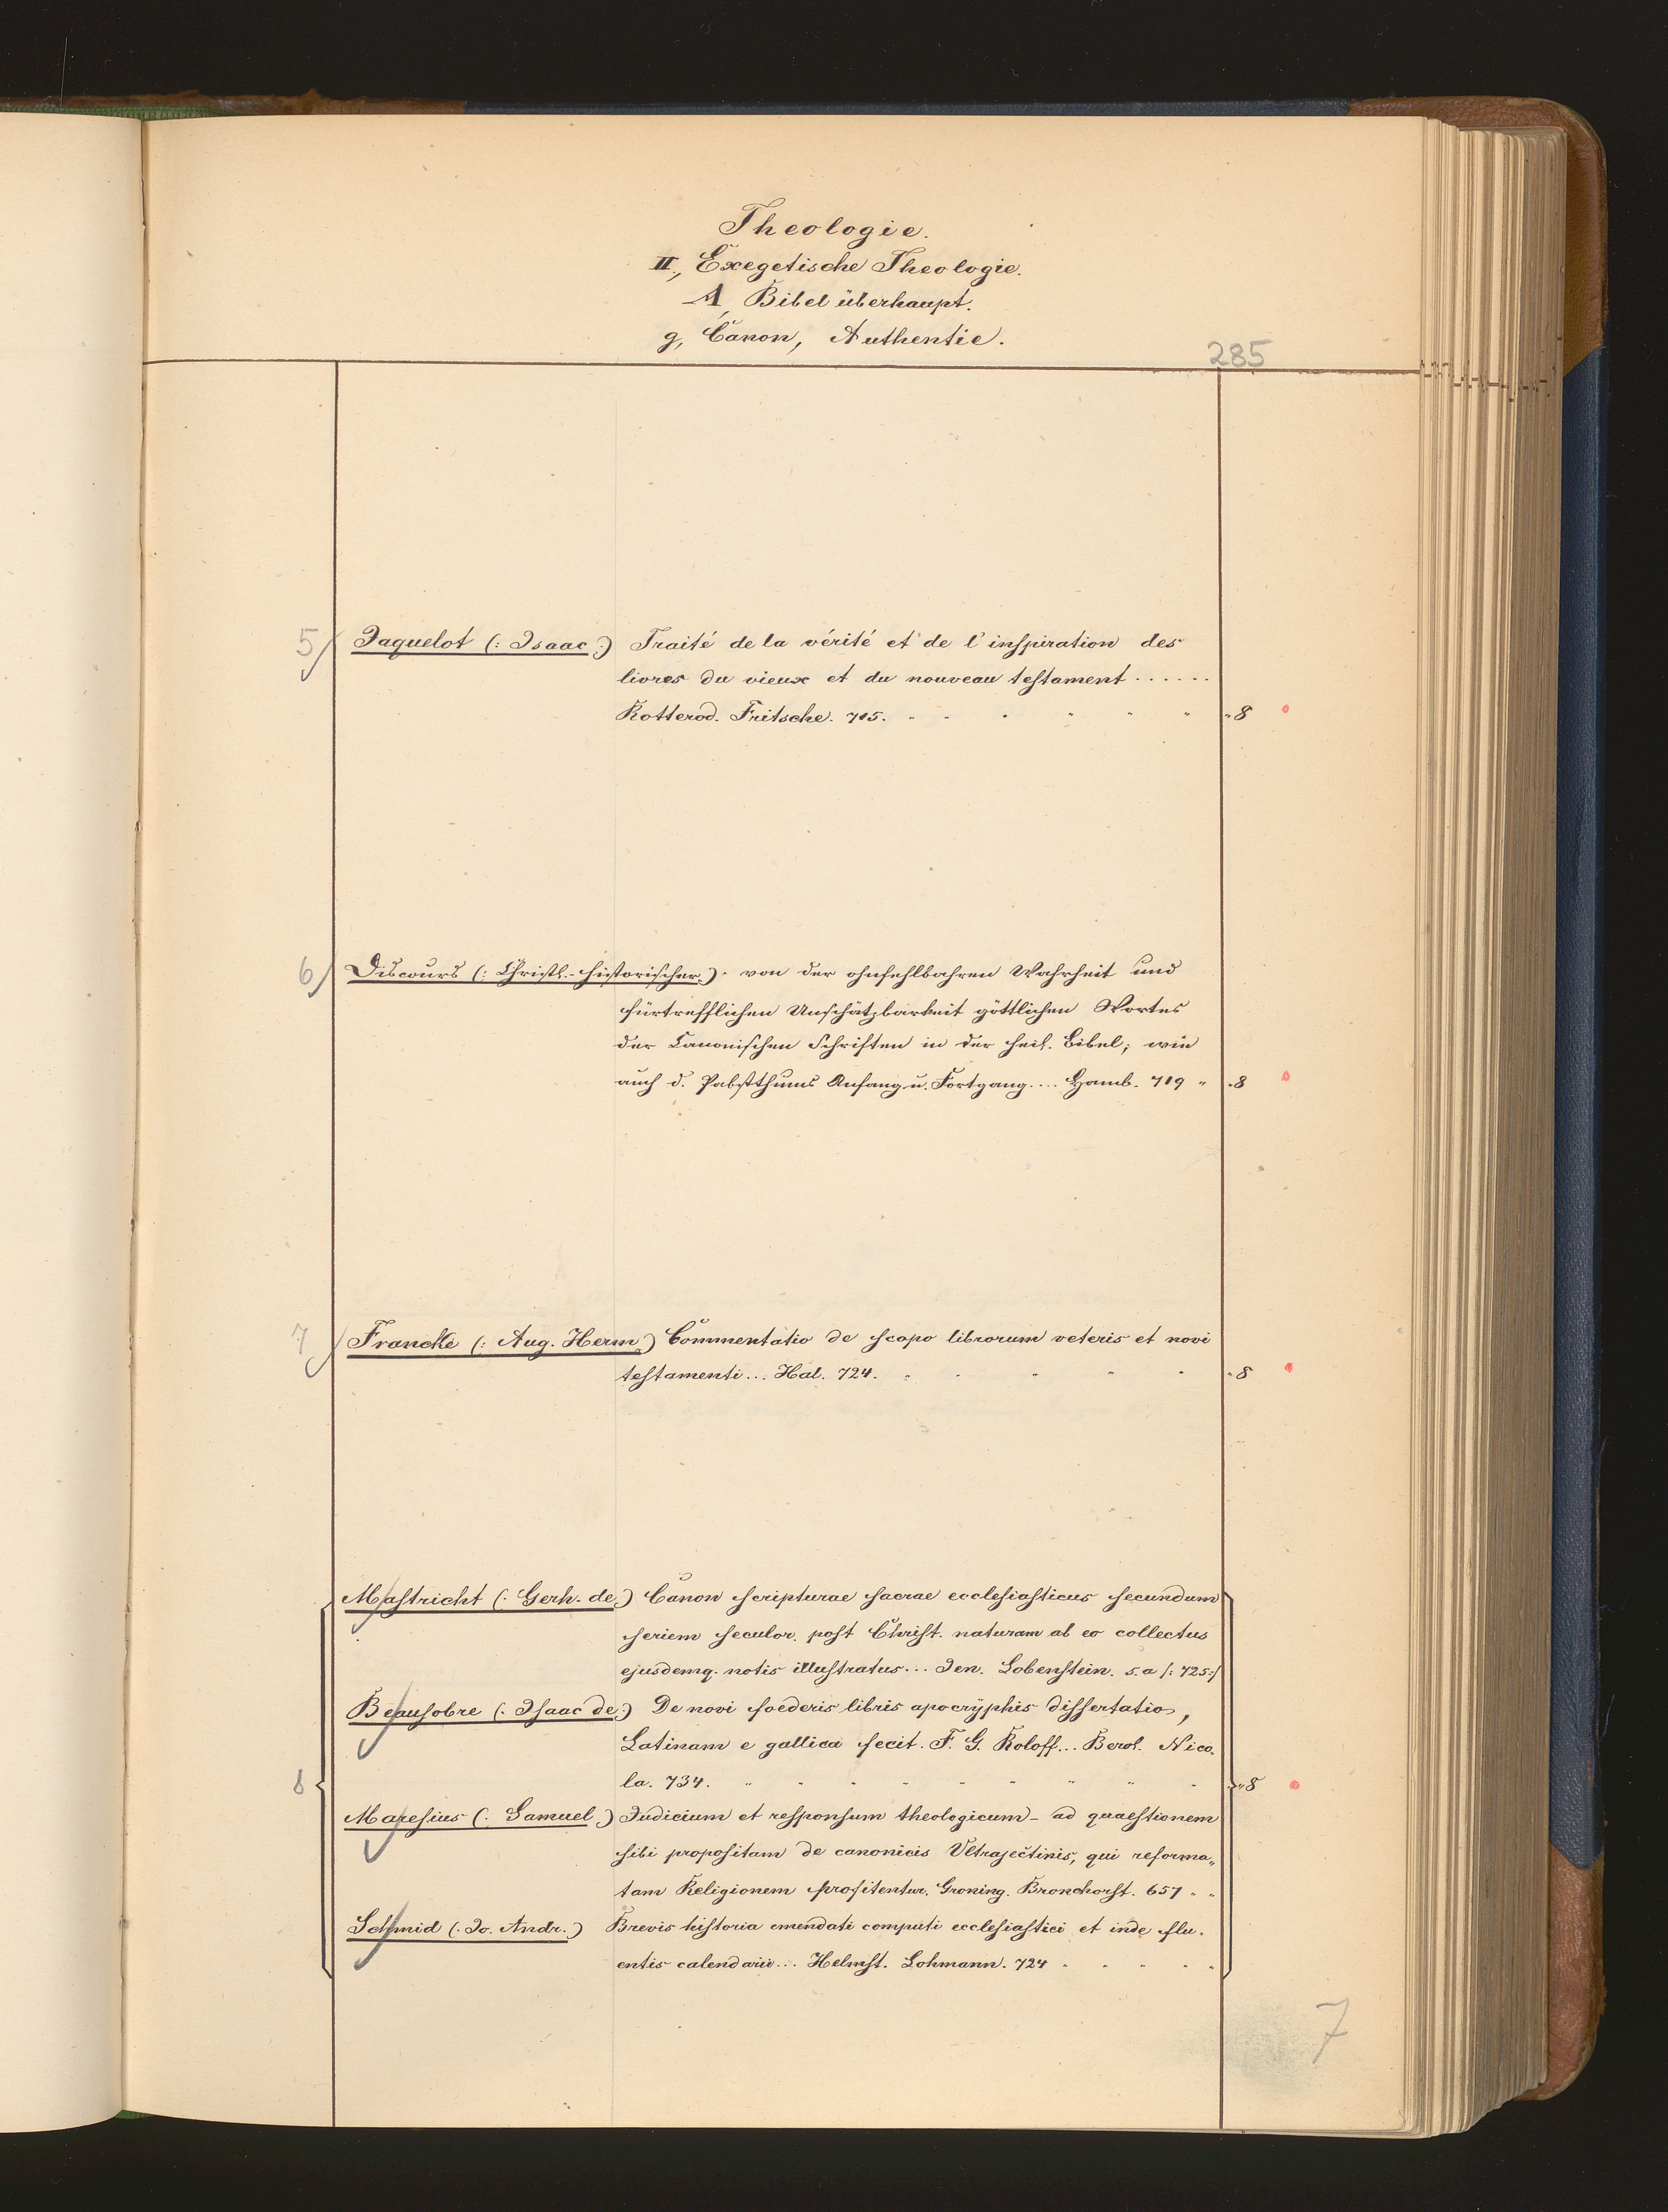 Theologie.
II., Exegetische Theologie.
A, Bibel überhaupt.
g, Canon, Authentie.
285
5 Jaquelot (: Isaac :) Traité de la vérité et de l'inspiration des
livres du vieux et du nouveau testament . . . . . .
Rotterod. Fritsche. 715. " 8
6 Discours (: Christl.-historischer :) von der ohnfehlbahren Wahrheit und
fürtrefflichen Unschätzbarkeit göttlichen Wortes
der Canonischen Schriften in der heil. Bibel; wie
auch d. Pabstthums Anfang u. Fortgang.... Hamb. 719 " 8
7 Francke (: Aug. Herm. :) Commentatio de scopo librorum veteris et novi
testamenti... Hal. 724. " 8
Mastricht (: Gerh. de :) Canon scripturae sacrae ecclesiasticus secundum
seriem seculor. post Christ. naturam ab eo collectus
ejusdemq. notis illustratus... Jen. Lobenstein. s. a /: 725 :/
Beausobre (: Isaac de :) De novi foederis libris apocryphis dissertatio,
Latinam e gallica fecit. F. G. Roloff... Berol. Nico-
8 la. 734. " 8
Maresius (: Samuel :) Judicium et responsum theologicum - ad quaestionem
sibi propositam de canonicis Ultrajectinis, qui reforma-
tam Religionem profitentur. Groning. Bronchorst. 657 " "
Schmid (: Jo. Andr. :) Brevis historia emendati computi ecclesiastici et inde flu-
entis calendarii... Helmst. Lohmann. 724
7